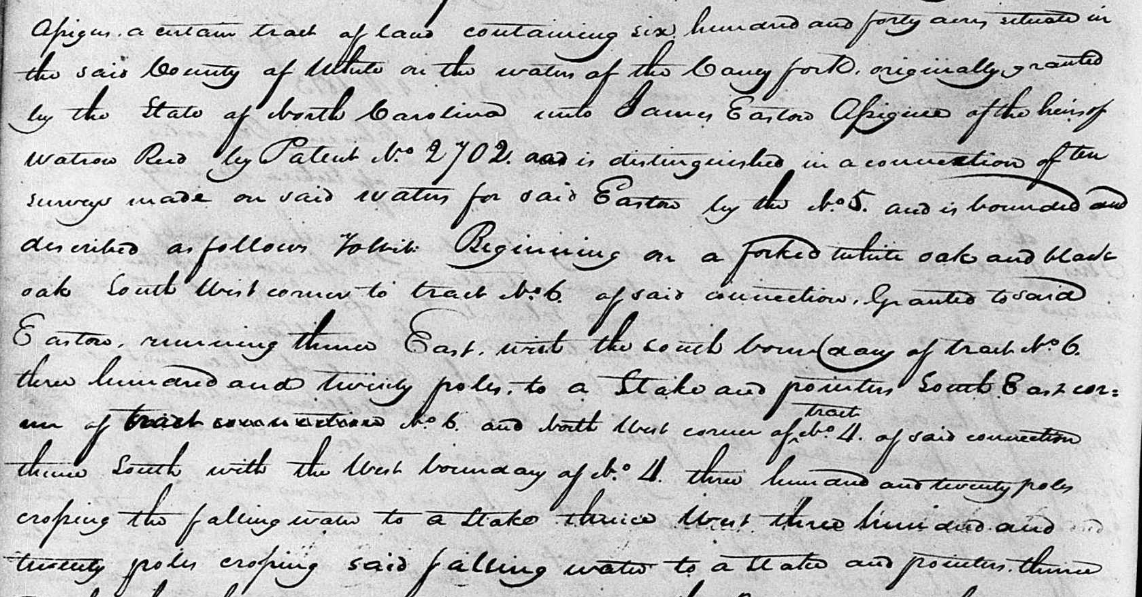 assigns. a certain tract of land containing six hundred and forty acres situate in
the said County of White on the waters of the Caney fork, originally granted
by the State of North Carolina unto James Easton Assignee of the heirs of
Watson Reed by Patent No. 2702. and is distinguished in a connection of ten
surveys made on said waters for said Easton by the No. 5. and is bounded and
described as follows Towit: Beginning on a forked white oak and black
oak South West corner to tract No. 6. of said connection, Granted to said
Easton, running thence East, with the South boundary of tract No. 6.
three hundred and twenty poles, to a Stake and pointers South East cor=
ner of tract connection No. 6. and North West corner of tract No. 4. of said connection
thence South with the West boundary of No. 4. three hundred and twenty poles
crossing the falling water to a Stake thence West three hundred and
twenty poles crossing said falling water to a Stake and pointers. thence